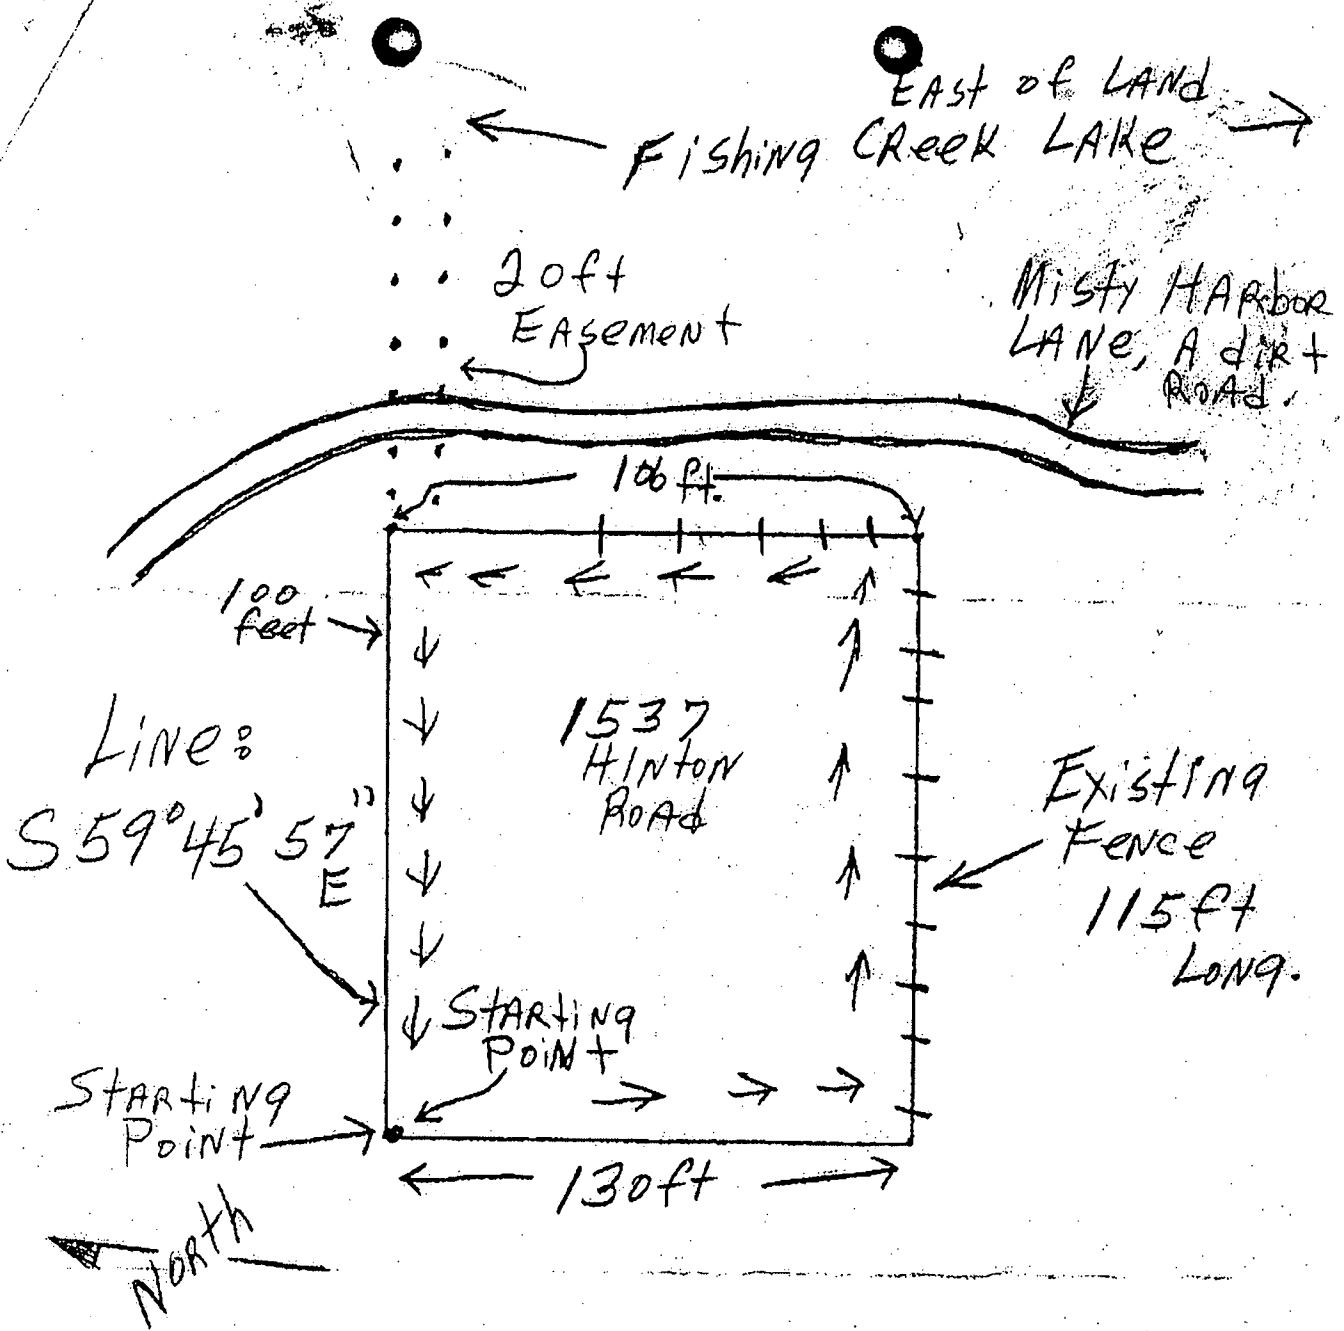 EAST of LANd
Fishing CReeK LAKe
20ft
EASEMENT
MisTy HARboR
LANe, A diRt
ROAd.
106 ft.
100
feet
LiNe:
S 59° 45' 57"
E
1537
HINtoN
ROAd
ExistiNg
FeNce
115 ft
LoNg.
STARtiNg
PoiNt
STARtiNg
PoiNt
130ft
NoRth